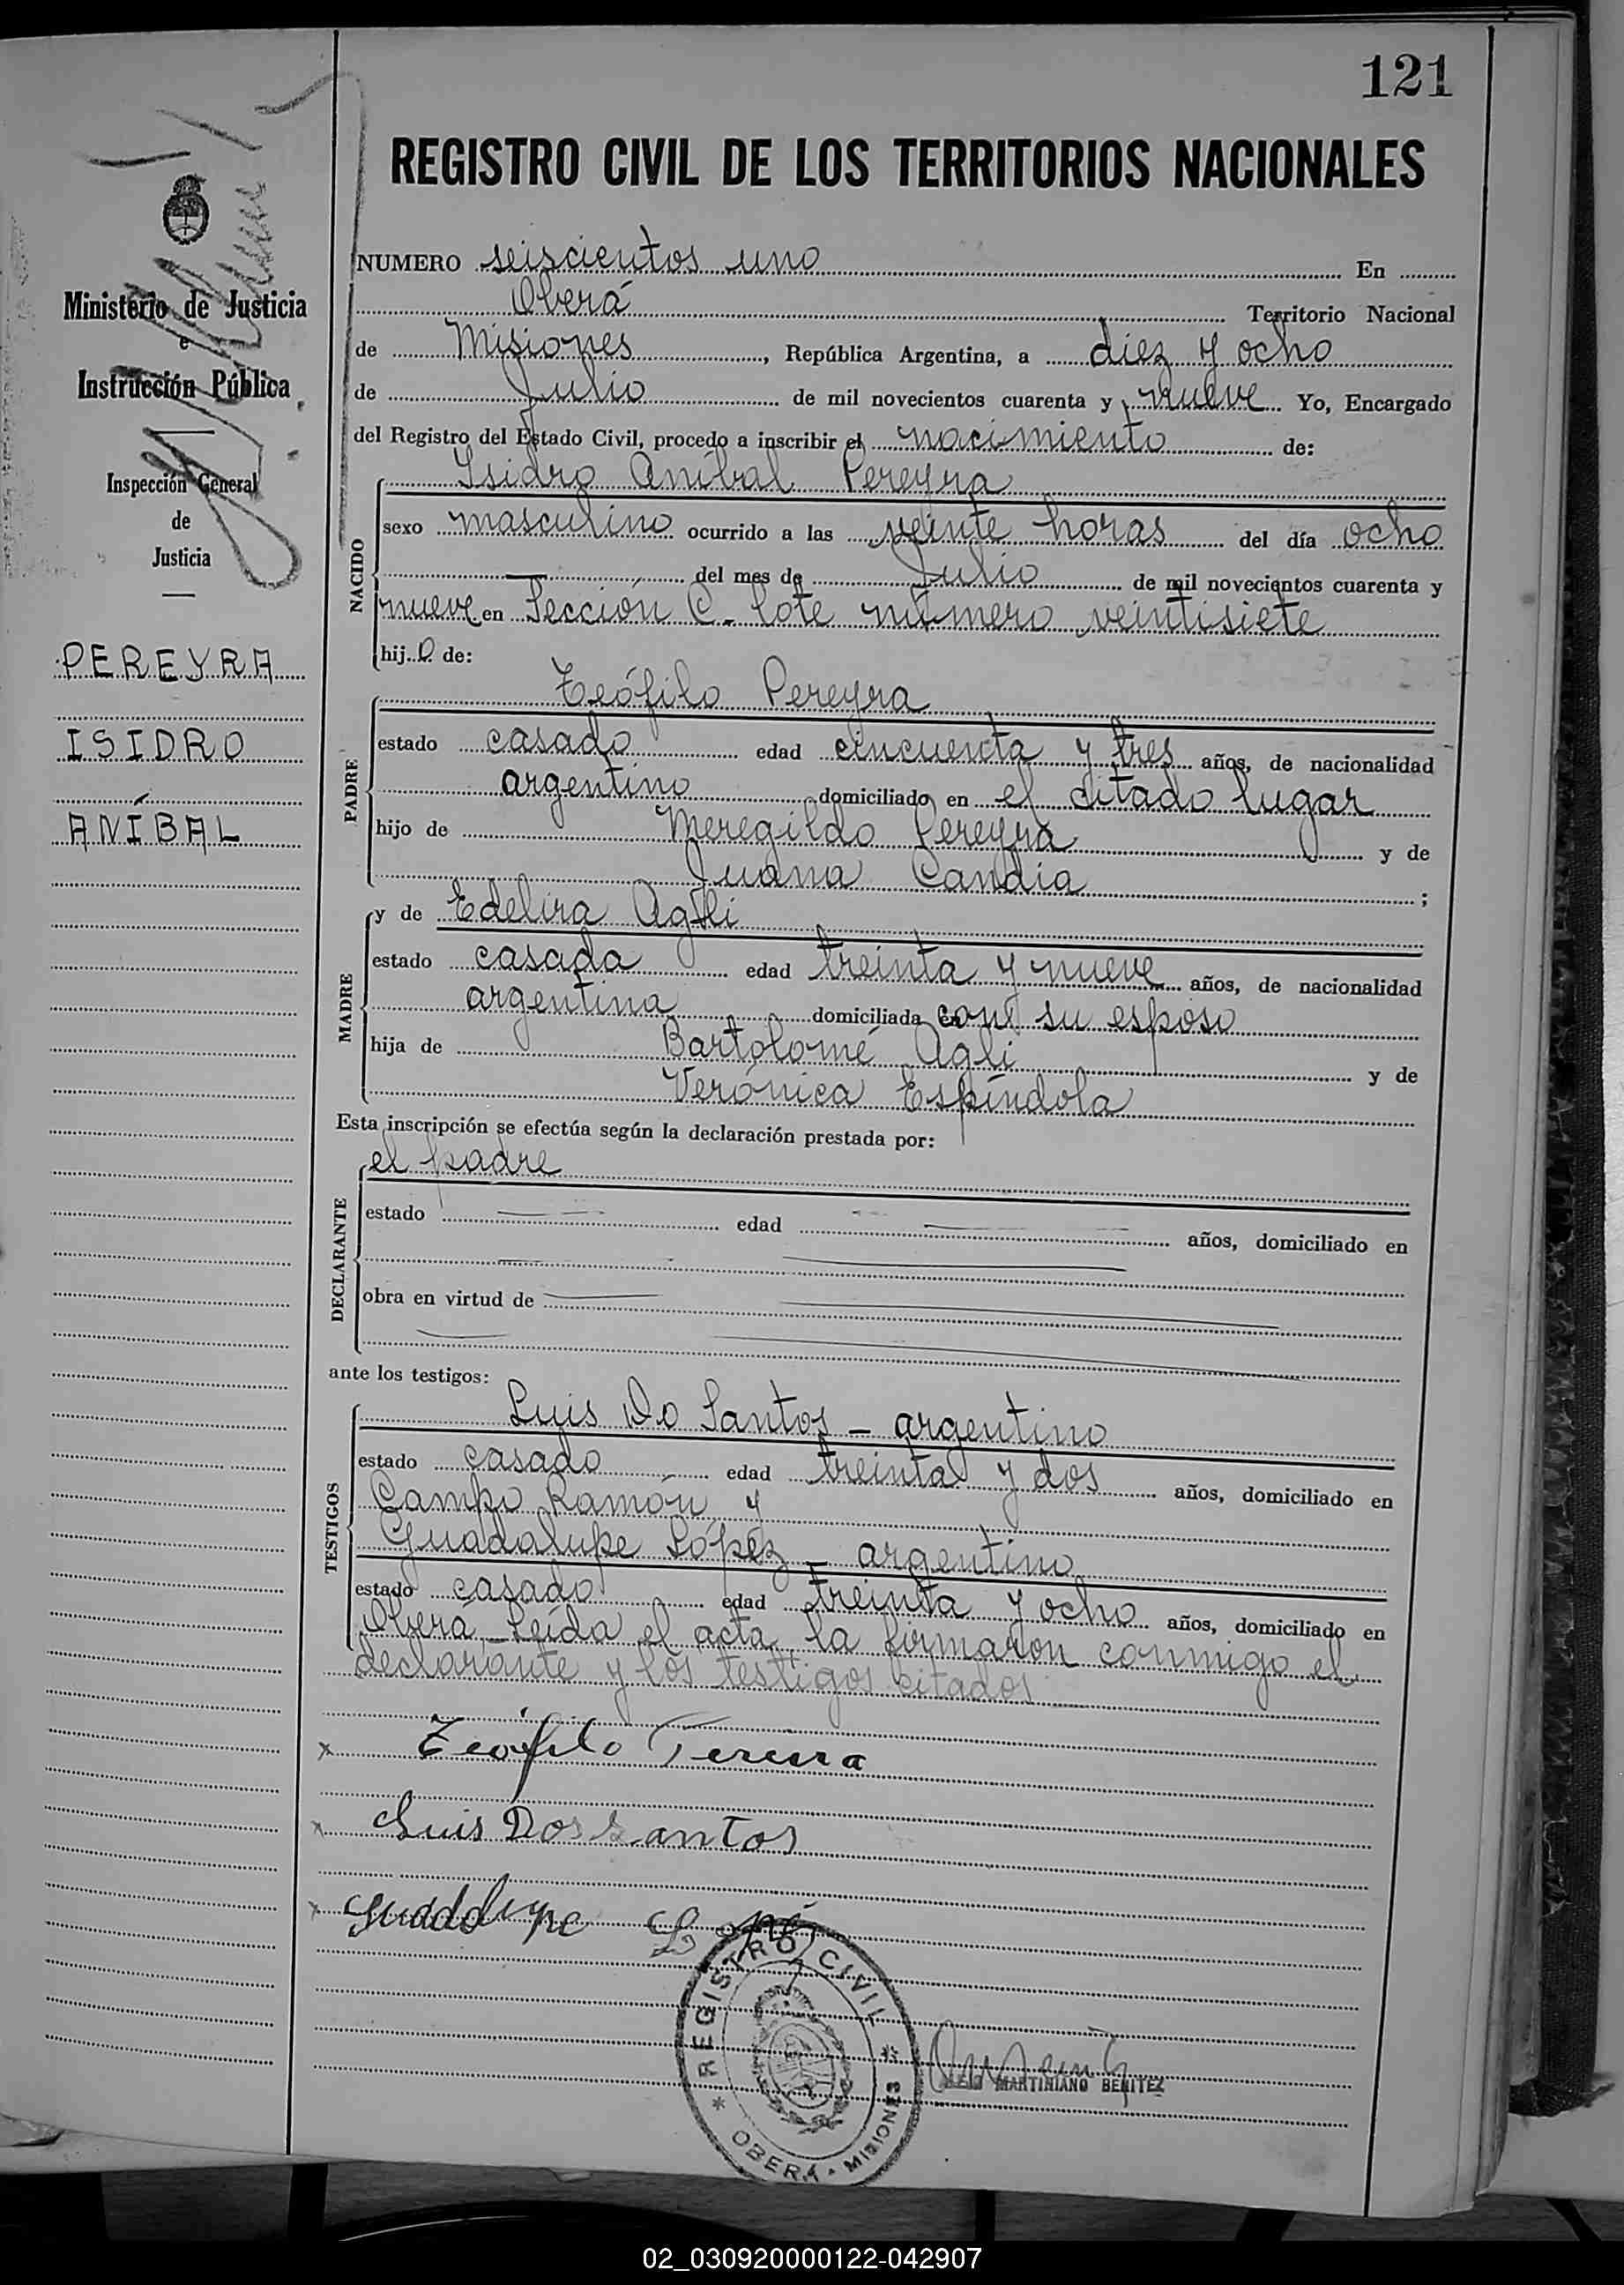 121
REGISTRO CIVIL DE LOS TERRITORIOS NACIONALES
Ministerio de Justicia
e
Instrucción Pública
Inspección General
de
Justicia
PEREYRA
ISIDRO
ANÍBAL
NUMERO seiscientos uno En
Oberá Territorio Nacional
de Misiones, República Argentina, a diez y ocho
de Julio de mil novecientos cuarenta y nueve Yo, Encargado
del Registro del Estado Civil, procedo a inscribir el nacimiento de:
NACIDO
Isidro Aníbal Pereyra
sexo masculino ocurrido a las veinte horas del día ocho
del mes de Julio de mil novecientos cuarenta y
nueve en Sección C. lote número veintisiete
hijo de:
PADRE
Teófilo Pereyra
estado casado edad cincuenta y tres años, de nacionalidad
argentino domiciliado en el citado lugar
hijo de Meregildo Pereyra y de
Juana Candia ;
MADRE
y de Edelira Agli
estado casada edad treinta y nueve años, de nacionalidad
argentina domiciliada con su esposo
hija de Bartolomé Agli y de
Verónica Espíndola
Esta inscripción se efectúa según la declaración prestada por:
DECLARANTE
el padre
estado edad años, domiciliado en
obra en virtud de
ante los testigos:
TESTIGOS
Luis Do Santos - argentino
estado casado edad treinta y dos años, domiciliado en
Campo Ramón y
Guadalupe López - argentino
estado casado edad treinta y ocho años, domiciliado en
Oberá. Leída el acta, la firmaron conmigo el
declarante y los testigos citados
x Teófilo Pereira
x Luis Dos Santos
x Guadalupe López
REGISTRO CIVIL
* OBERÁ - MISIONES *
MARTINIANO BENITEZ
02_030920000122-042907